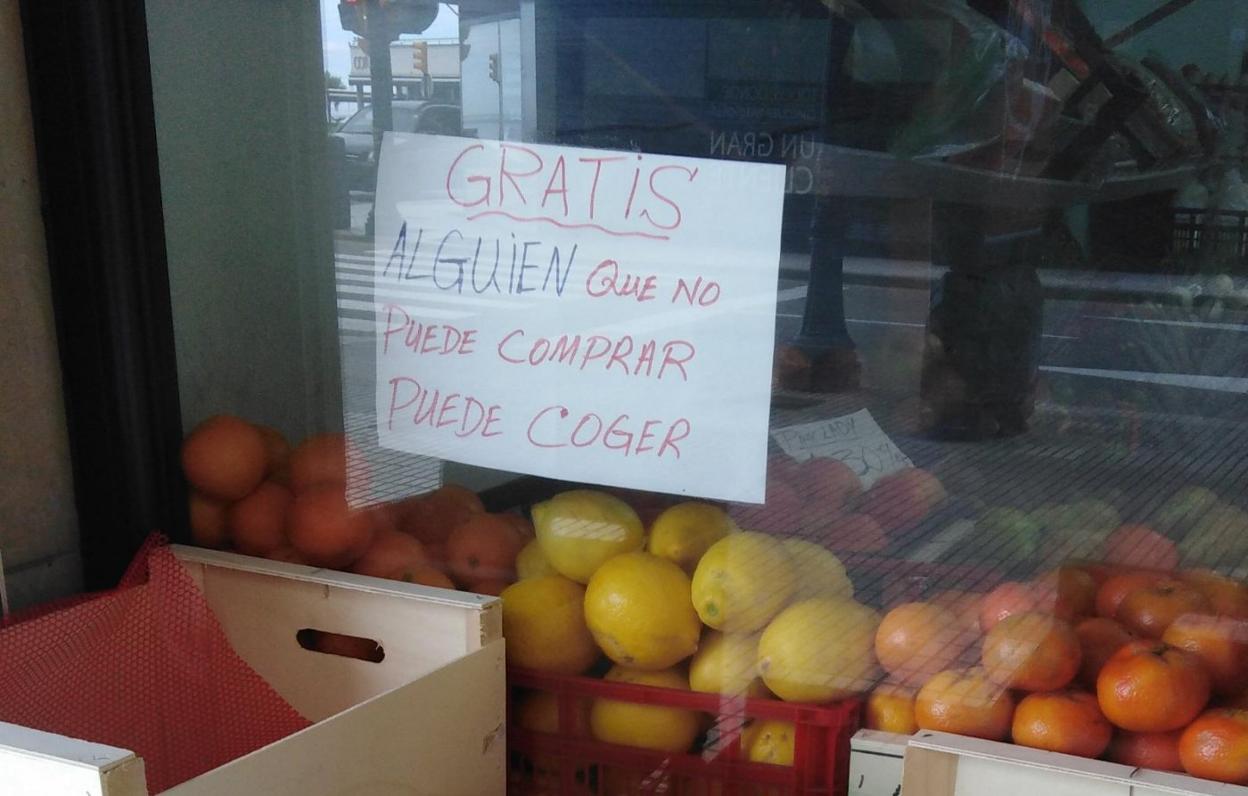 GRATiS
ALGUiEN QUE NO
PUEDE COMPRAR
PUEDE COGER
UN GRAN
PINK LADY